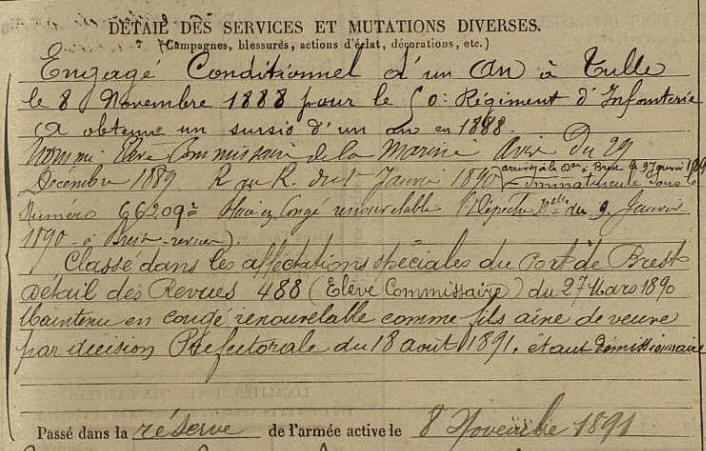 DÉTAIL DES SERVICES ET MUTATIONS DIVERSES.
(Campagnes, blessures, actions d'éclat, décorations, etc.)
Engagé Conditionnel d'un An à Tulle
le 8 Novembre 1888 pour le 50e Régiment d'Infanterie
(A obtenu un sursis d'un an en 1888.
Nommé Elève Commissaire de la Marine Avis du 29
Décembre 1889. R au R. du 1er Janvier 1890 Immatriculé sous le
Numéro 66209 en Congé renouvelable Dépêche Mlle du 9 Janvier
1890 - à Brest - revues).
Classé dans les affectations spéciales du Port de Brest
Détail des Revues 488 (Elève Commissaire) du 27 Mars 1890
Maintenu en congé renouvelable comme fils aîné de veuve
par décision Préfectorale du 18 août 1891. étant démissionnaire
Passé dans la réserve de l'armée active le 8 Novembre 1891